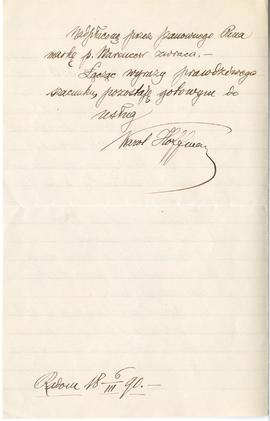 Nadpłaconą przez szanownego Pana
markę p. Marencow zwraca.—
Łącząc wyrazy prawdziwego
szacunku, pozostaję gotowym do
usług
Karol Hoffman
Radom 18 6/III 90.—